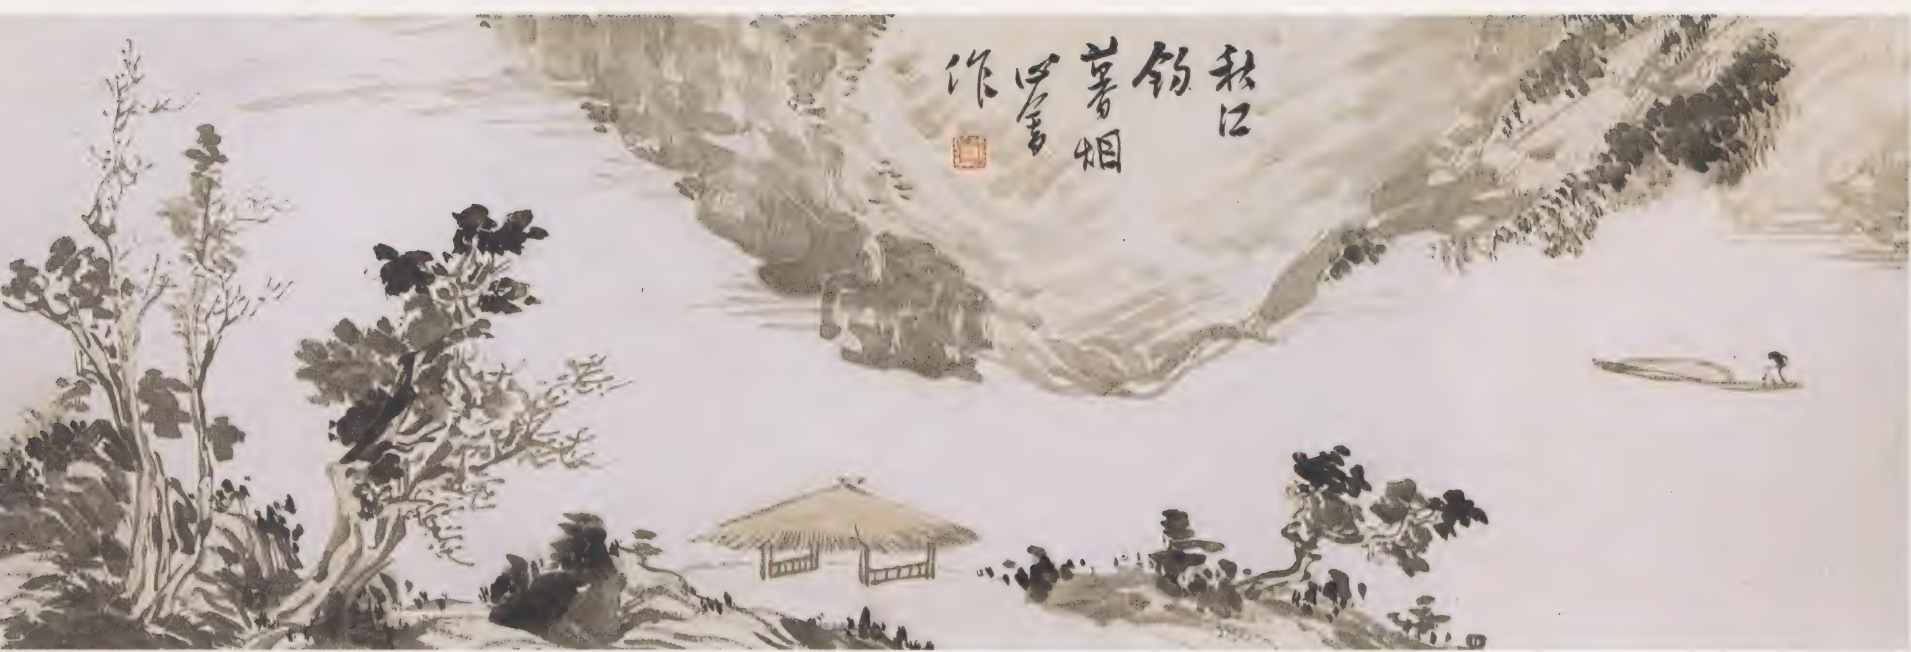 秋江
釣
暮烟
心畬
作